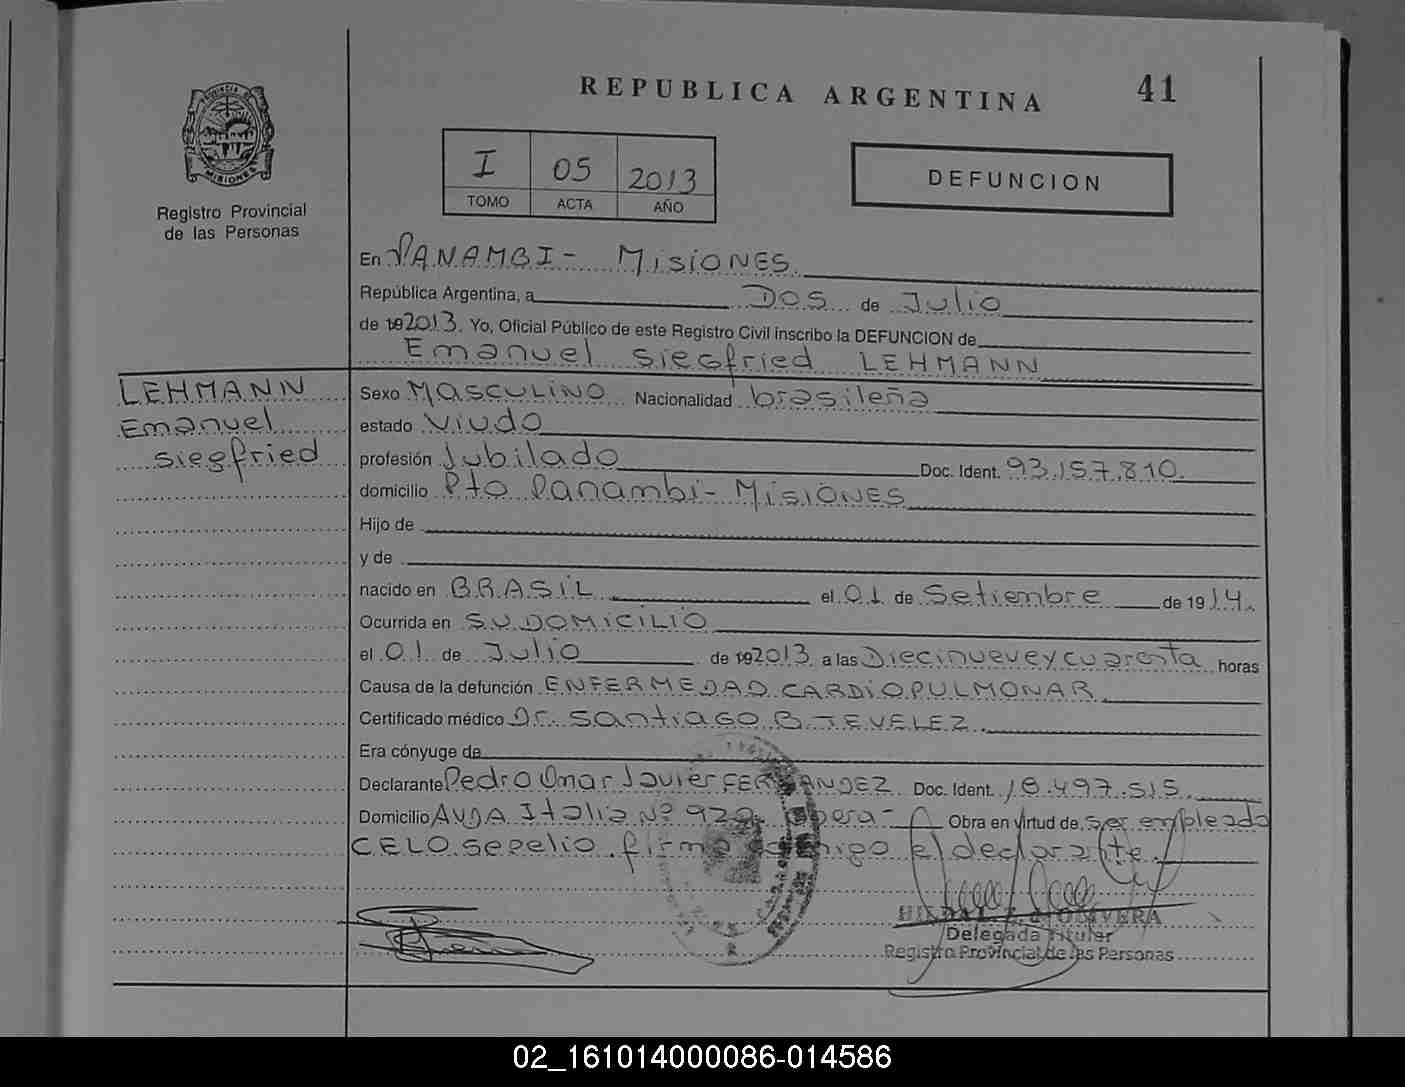 REPUBLICA ARGENTINA
41
PROVINCIA DE
MISIONES
Registro Provincial
de las Personas
I
05
2013
TOMO
ACTA
AÑO
DEFUNCION
En PANAMBI - MisiONES
República Argentina, a Dos de Julio
de 192013. Yo, Oficial Público de este Registro Civil inscribo la DEFUNCION de
Emanuel siegfried LEHMANN
LEHMANN
Emanuel
siegfried
Sexo Masculino Nacionalidad brasileña
estado Viudo
profesión Jubilado Doc. Ident. 93.157.810.
domicilio Pto Panambi - MisiONES
Hijo de
y de
nacido en BRASIL el 01 de Setiembre de 1914.
Ocurrida en SU DOMICILIO
el 01 de Julio de 192013 a las Diecinueve y cuarenta horas
Causa de la defunción ENFERMEDAD CARDIOPULMONAR
Certificado médico Dr. Santiago B. TEVELEZ
Era cónyuge de
Declarante Pedro Omar Javier FERNANDEZ Doc. Ident. 18.497.515.
Domicilio AVDA Italia Nº 920. Obera - Obra en virtud de ser empleado
CELO sepelio. firma conmigo el declarante.
Delegada Titular
Registro Provincial de las Personas
02_161014000086-014586